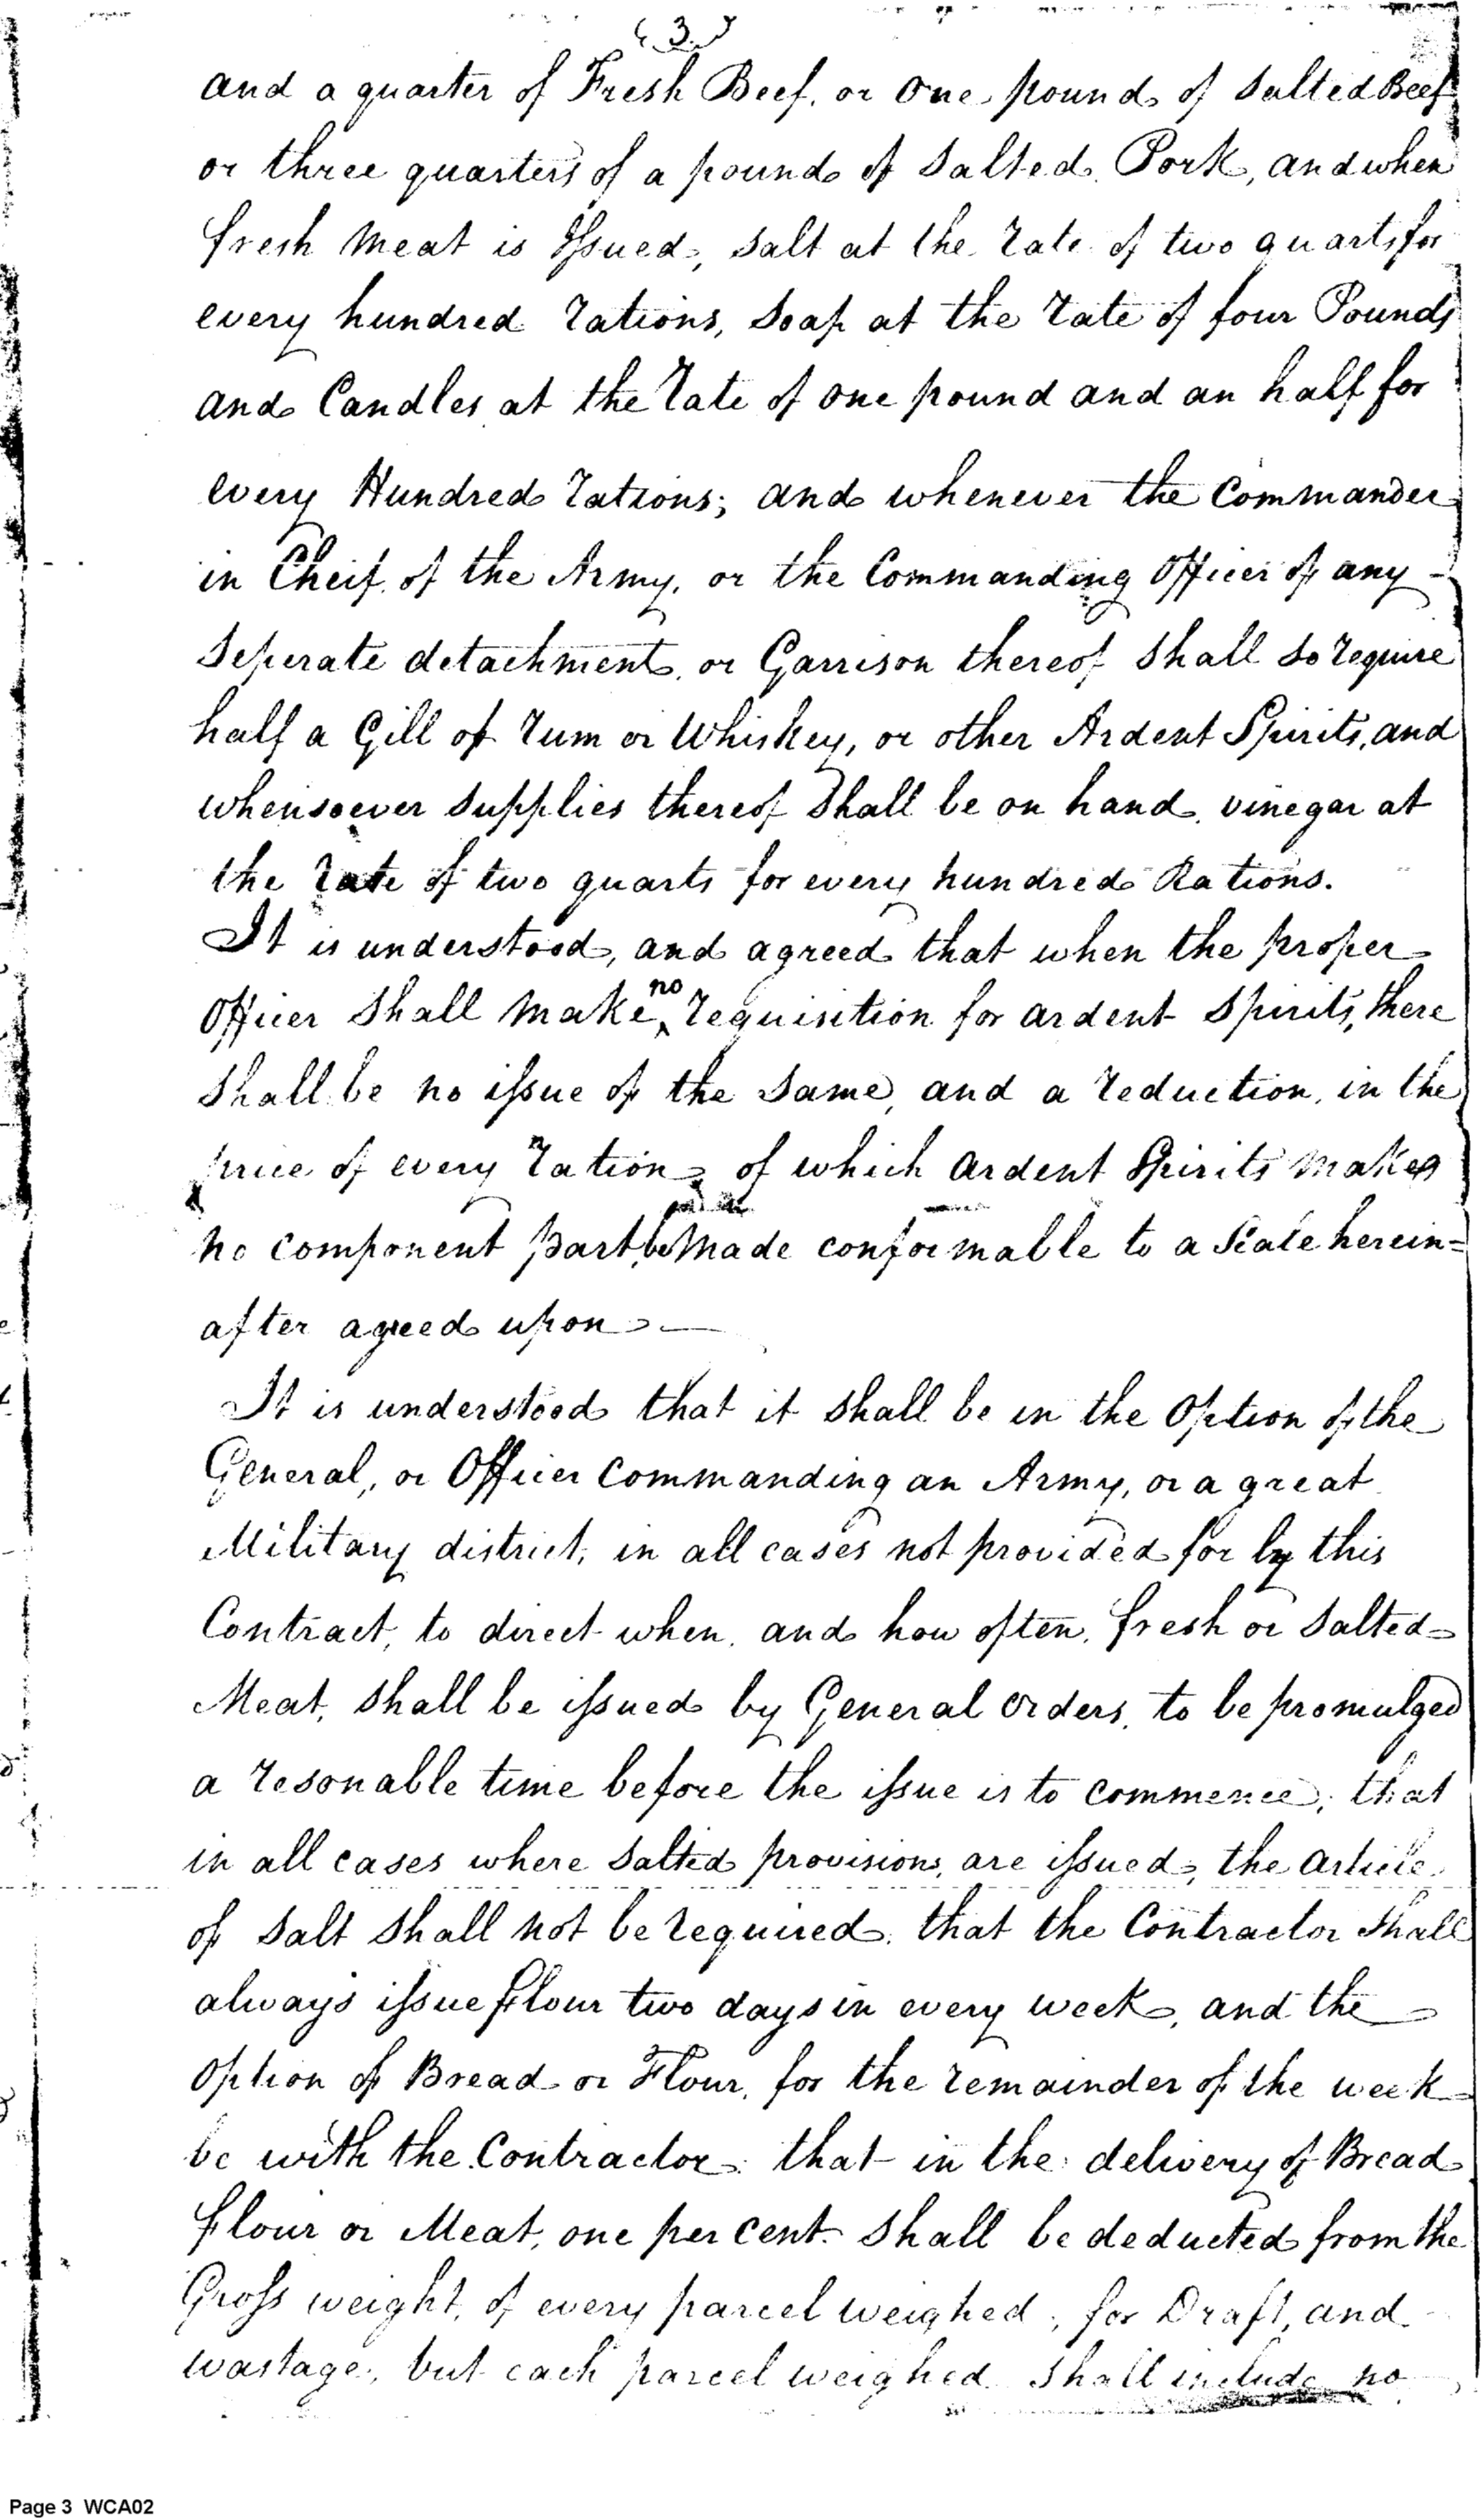 (3)
and a quarter of Fresh Beef, or one pound of Salted Beef
or three quarters of a pound of Salted Pork, and when
fresh Meat is Issued, Salt at the rate of two quarts for
every hundred rations, Soap at the rate of four Pounds
and Candles at the rate of one pound and an half for
every Hundred rations; and whenever the Commander
in Cheif of the Army, or the Commanding Officer of any
Seperate detachment, or Garrison thereof Shall So require
half a Gill of rum or Whiskey, or other Ardent Spirits, and
whensoever Supplies thereof Shall be on hand, vinegar at
the rate of two quarts for every hundred Rations.
It is understood, and agreed that when the proper
Officer Shall Make no requisition for ardent Spirits, there
Shall be no issue of the Same, and a reduction, in the
price of every ration, of which Ardent Spirits Makes
no component part, be Made conformable to a Scale herein=
after agreed upon.—
It is understood that it Shall be in the Option of the
General, or Officer Commanding an Army, or a great
Military district, in all cases not provided for by this
Contract, to direct when, and how often, fresh or Salted
Meat, Shall be issued by General Orders, to be promulged
a resonable time before the issue is to commence; that
in all cases where Salted provisions, are issued, the Article
of Salt Shall not be required, that the Contractor Shall
always issue flour two days in every week, and the
Option of Bread or Flour, for the remainder of the week
be with the Contractor that in the delivery of Bread
flour or Meat, one per cent. Shall be deducted from the
Gross weight, of every parcel weighed, for Draft, and
wastage, but each parcel weighed Shall include no
Page 3 WCA02